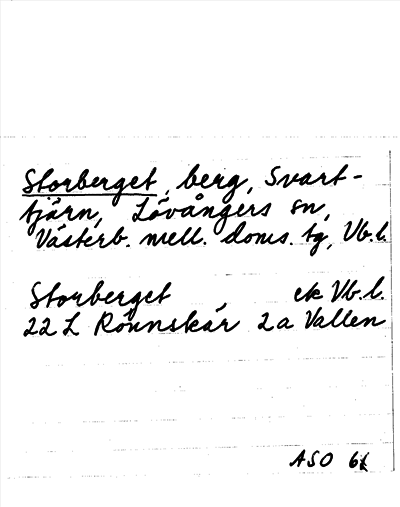 Storberget, berg, Svart-
tjärn, Lövångers sn,
Västerb. mell. doms. tg, Vb.l.
Storberget, ek Vb.l.
22 L Rönnskär 2a Vallen
ASO